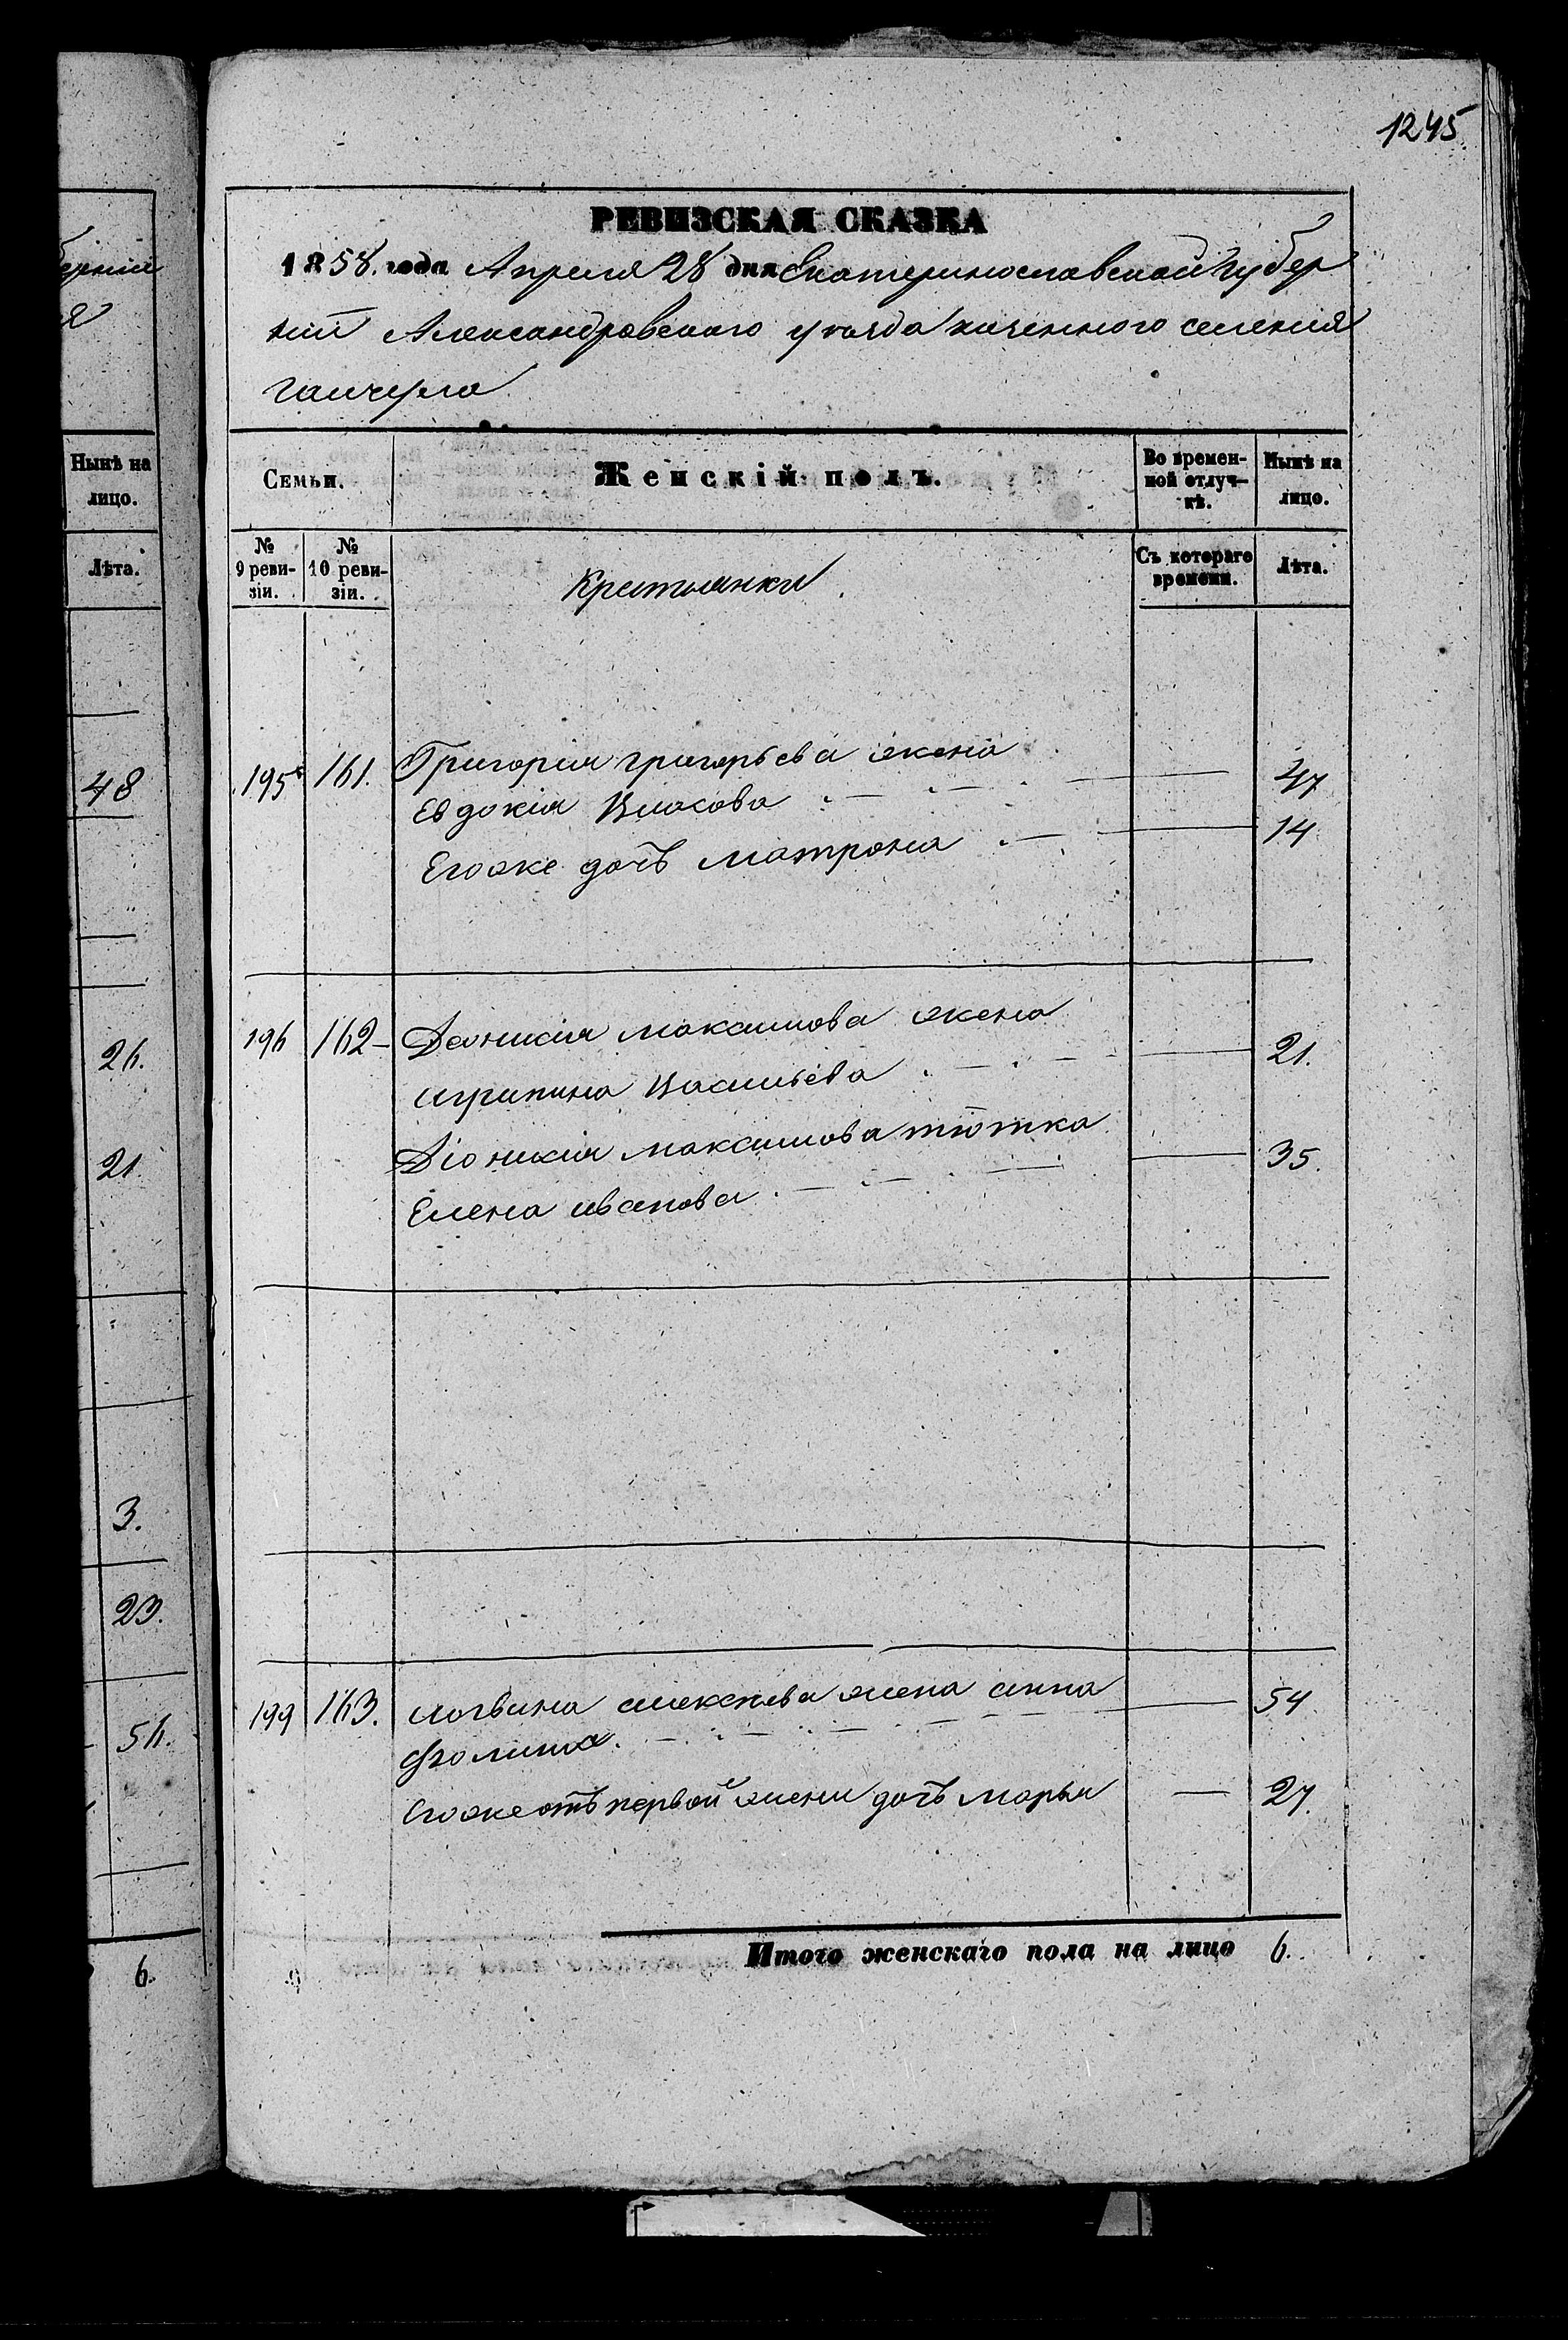 1245
берніи
я
Нынѣ на
лицо.
Лѣта.
48
26.
21
3.
23.
56.
6.
РЕВИЗСКАЯ СКАЗКА
1858. года Апреля 28 дня Екатеринославской губер
ніи Александровского уезда казенного селения
гайчула
Семьи.
Женскій полъ.
Во времен-
ной отлуч-
кѣ.
Нынѣ на
лицо.
№
9 реви-
зіи.
№
10 реви-
зіи.
Крестьянки
Съ котораго
времени.
Лѣта.
195 161. Григория григорьева жена
Евдокия Власова 47
Егоже дочь матрона 14
196 162 максимова жена
агрипина Васильева 21.
Діонисия максимова тіотка
Елена иванова 35.
199 163. логвина алексеева жена анна 54
фомина
Егоже отъ первой жены дочь марья 27.
Итого женскаго пола на лицо 6.